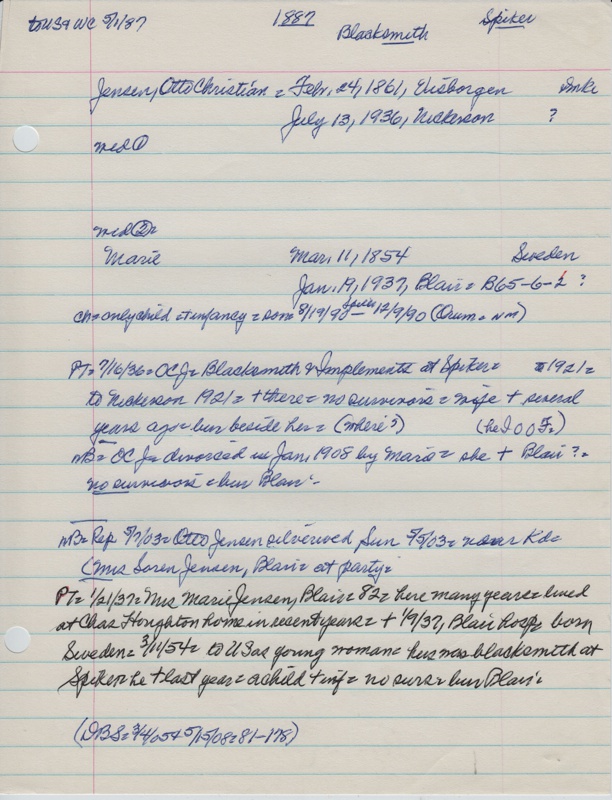 to US & WC 5/1/87 1887 Blacksmith Spiker
Jensen, Otto Christian = Febr. 24, 1861, Elisborgen Dmk
July 13, 1936, Nickerson ?
med ①
med ②=
Marie Mar. 11, 1854 Sweden
Jan. 19, 1937, Blair = B65-6-2 ?
ch = only child = infancy = son 8/19/90 Spiker - 12/9/90 (Orum = NM)
PT = 7/16/36 = OCJ = Blacksmith & Implements at Spiker = 1921 =
to Nickerson 1921 = + there = no survivors = wife + several
years ago = bur beside her = (where?) (he IOOF =)
NB = OCJ = divorced in Jan. 1908 by Marie = she + Blair ? =
no survivors = bur Blair =
NB = Rep 5/7/03 = Otto Jensen silverwed Sun 5/5/03 = near Kd =
(Mrs Soren Jensen, Blair = at party =
PT = 1/21/37 = Mrs Marie Jensen, Blair = 82 = here many years = lived
at Chas Houghton home in recent years = + 1/9/37, Blair hosp = born
Sweden = 3/11/54 = to US as young woman = hus was blacksmith at
Spiker = he + last year = a child + inf = no survs = bur Blair =
(DBS = 3/4/05 & 5/15/08 = 81-178)